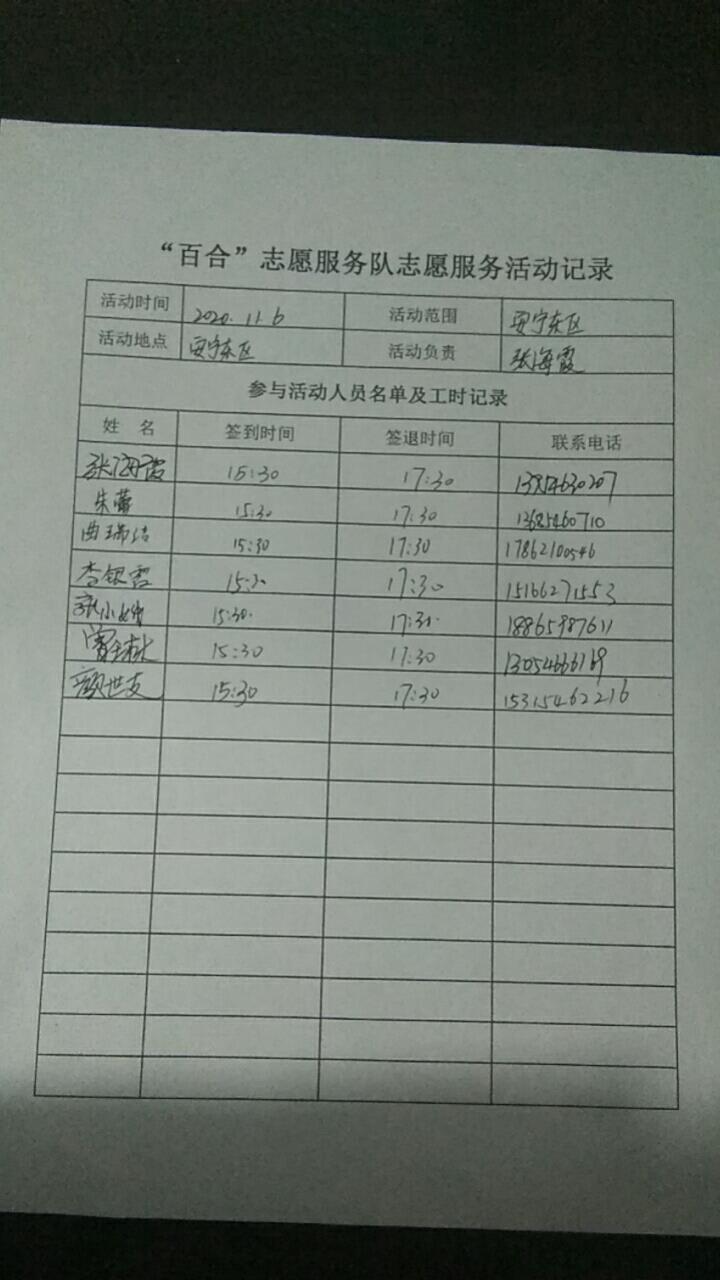 “百合”志愿服务队志愿服务活动记录
活动时间 2020.11.6 活动范围 安宁东区
活动地点 安宁东区 活动负责 张海霞
参与活动人员名单及工时记录
姓 名 签到时间 签退时间 联系电话
张海霞 15:30 17:30 13854630207
朱蕾 15:30 17:30 13685460710
曲瑞洁 15:30 17:30 17862100546
李银雪 15:30 17:30 15166271553
15:30. 17:30. 18865987611
15:30 17:30 13054666169
顾世友 15:30 17:30 15315462216